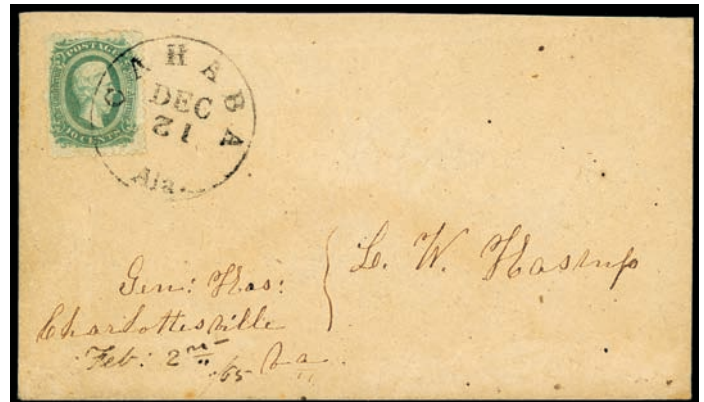 POSTAGE
10 CENTS
CAHABA
DEC
21
Ala.
L. W. Hastrup
Gen: Hos:
Charlottesville
Feb: 2nd /65 Va.